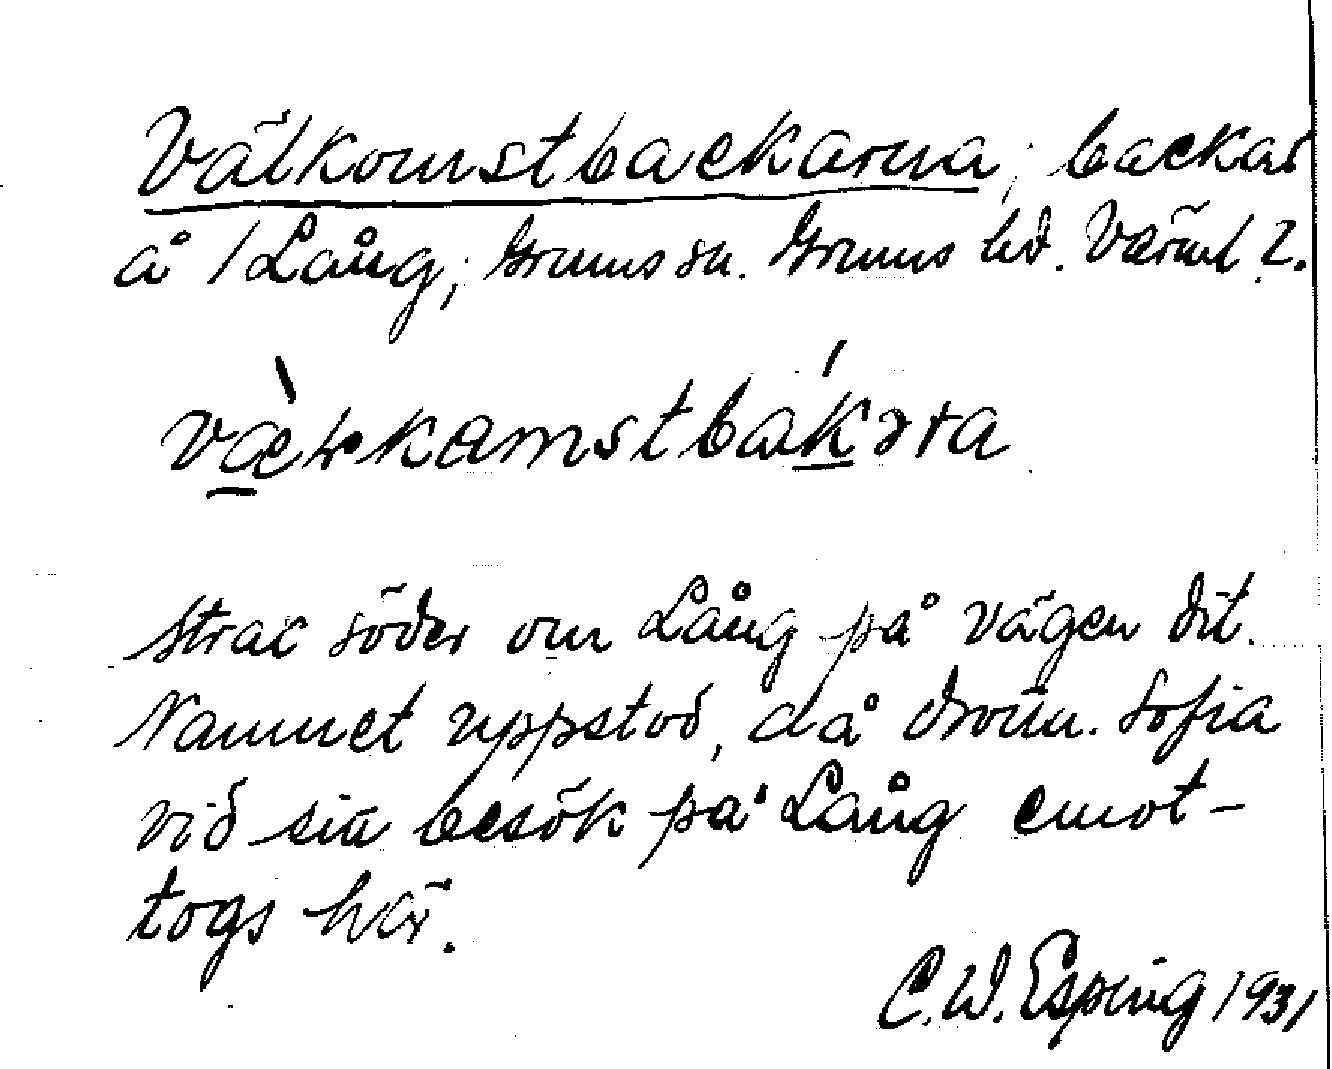 Välkomstbackarna, backar
å /Lång; Grums sn. Grums hd. Värml. l.
strax söder om Lång på vägen dit.
Namnet uppstod, då drottn. Sofia
vid sitt besök på Lång emot-
togs här.
C.W. Esping 1931